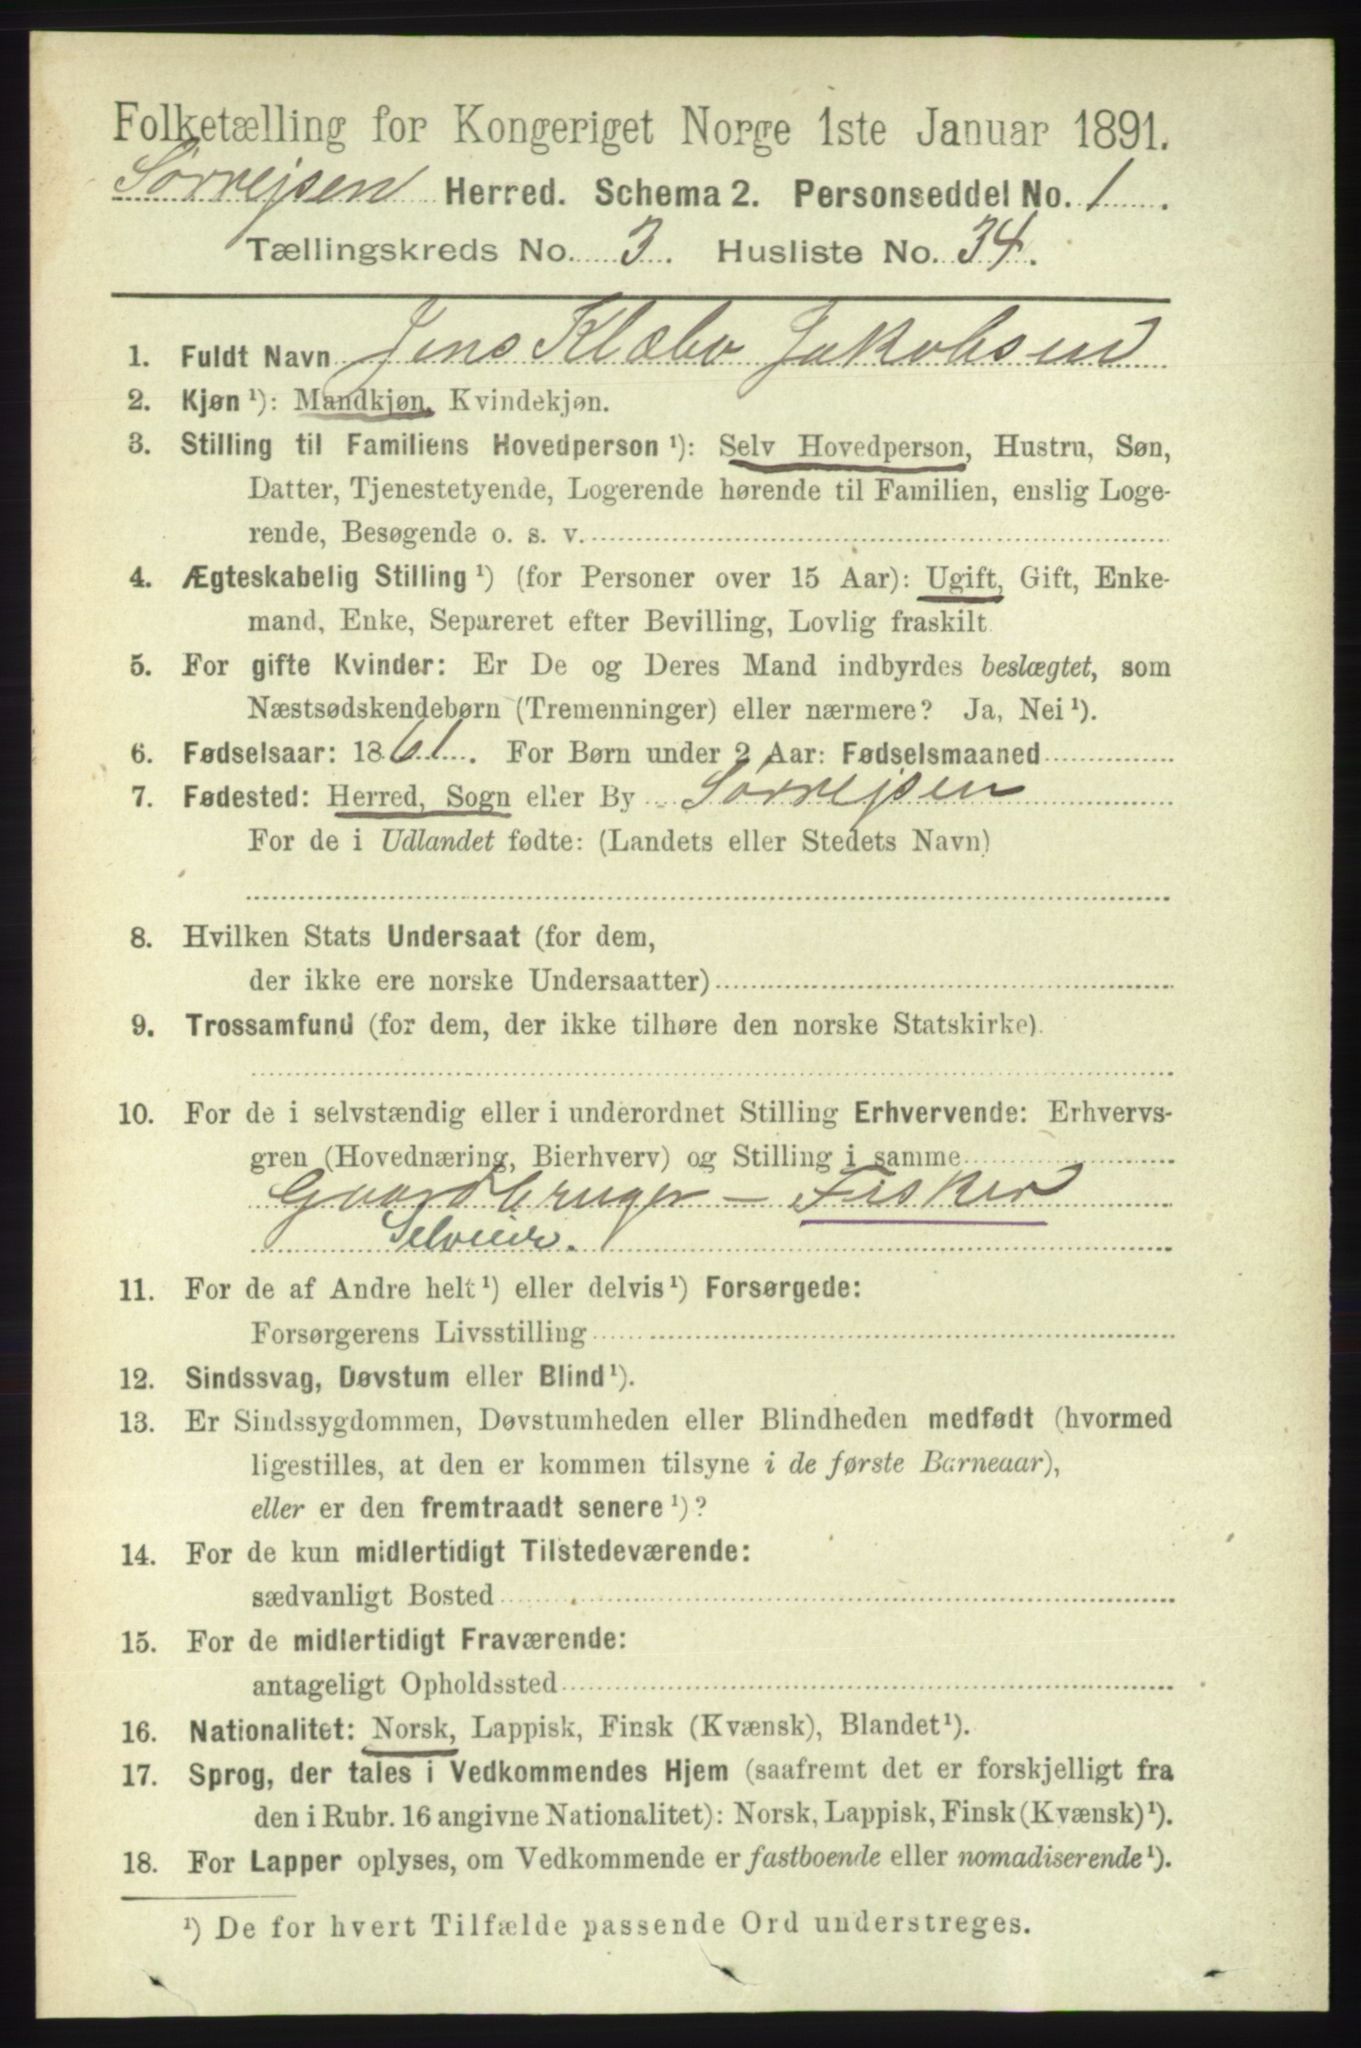 Folketælling for Kongeriget Norge 1ste Januar 1891.
Sørrejsen Herred. Schema 2. Personseddel No. 1.
Tællingskreds No. 3. Husliste No. 34.
1. Fuldt Navn Jens Klæbo Jakobsen
2. Kjøn ¹): Mandkjøn, Kvindekjøn.
3. Stilling til Familiens Hovedperson ¹): Selv Hovedperson, Hustru, Søn,
Datter, Tjenestetyende, Logerende hørende til Familien, enslig Loge-
rende, Besøgende o. s. v.
4. Ægteskabelig Stilling ¹) (for Personer over 15 Aar): Ugift, Gift, Enke-
mand, Enke, Separeret efter Bevilling, Lovlig fraskilt
5. For gifte Kvinder: Er De og Deres Mand indbyrdes beslægtet, som
Næstsødskendebørn (Tremenninger) eller nærmere? Ja, Nei ¹).
6. Fødselsaar: 1861. For Børn under 2 Aar: Fødselsmaaned
7. Fødested: Herred, Sogn eller By Sørrejsen
For de i Udlandet fødte: (Landets eller Stedets Navn)
8. Hvilken Stats Undersaat (for dem,
der ikke ere norske Undersaatter)
9. Trossamfund (for dem, der ikke tilhøre den norske Statskirke).
10. For de i selvstændig eller i underordnet Stilling Erhvervende: Erhvervs-
gren (Hovednæring, Bierhverv) og Stilling i samme
Gaardbruger - Fisker
Selveier.
11. For de af Andre helt ¹) eller delvis ¹) Forsørgede:
Forsørgerens Livsstilling
12. Sindssvag, Døvstum eller Blind ¹).
13. Er Sindssygdommen, Døvstumheden eller Blindheden medfødt (hvormed
ligestilles, at den er kommen tilsyne i de første Barneaar),
eller er den fremtraadt senere ¹)?
14. For de kun midlertidigt Tilstedeværende:
sædvanligt Bosted
15. For de midlertidigt Fraværende:
antageligt Opholdssted
16. Nationalitet: Norsk, Lappisk, Finsk (Kvænsk), Blandet ¹).
17. Sprog, der tales i Vedkommendes Hjem (saafremt det er forskjelligt fra
den i Rubr. 16 angivne Nationalitet): Norsk, Lappisk, Finsk (Kvænsk) ¹).
18. For Lapper oplyses, om Vedkommende er fastboende eller nomadiserende ¹).
¹) De for hvert Tilfælde passende Ord understreges.